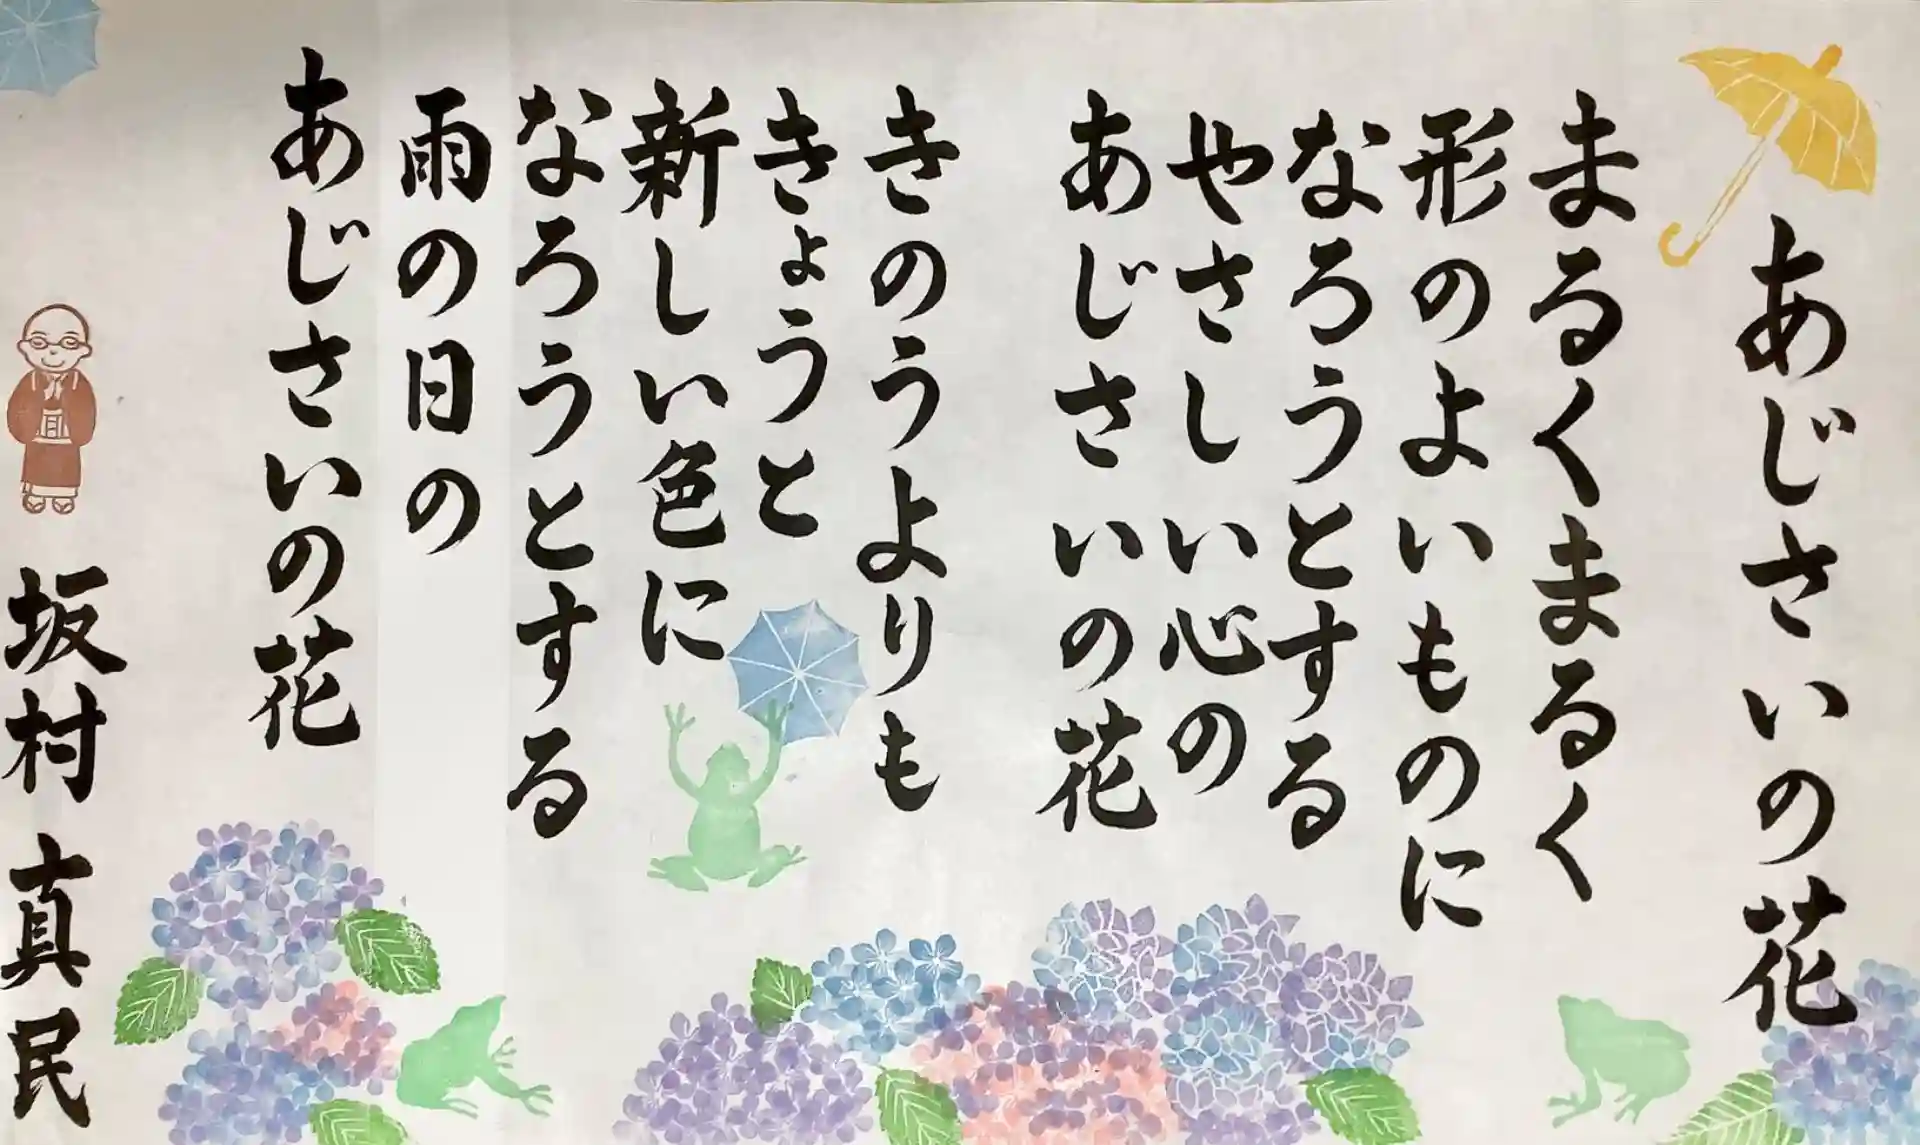 あじさいの花
まるくまるく
形のよいものに
なろうとする
やさしい心の
あじさいの花
きのうよりも
きょうと
新しい色に
なろうとする
雨の日の
あじさいの花
坂村 真民